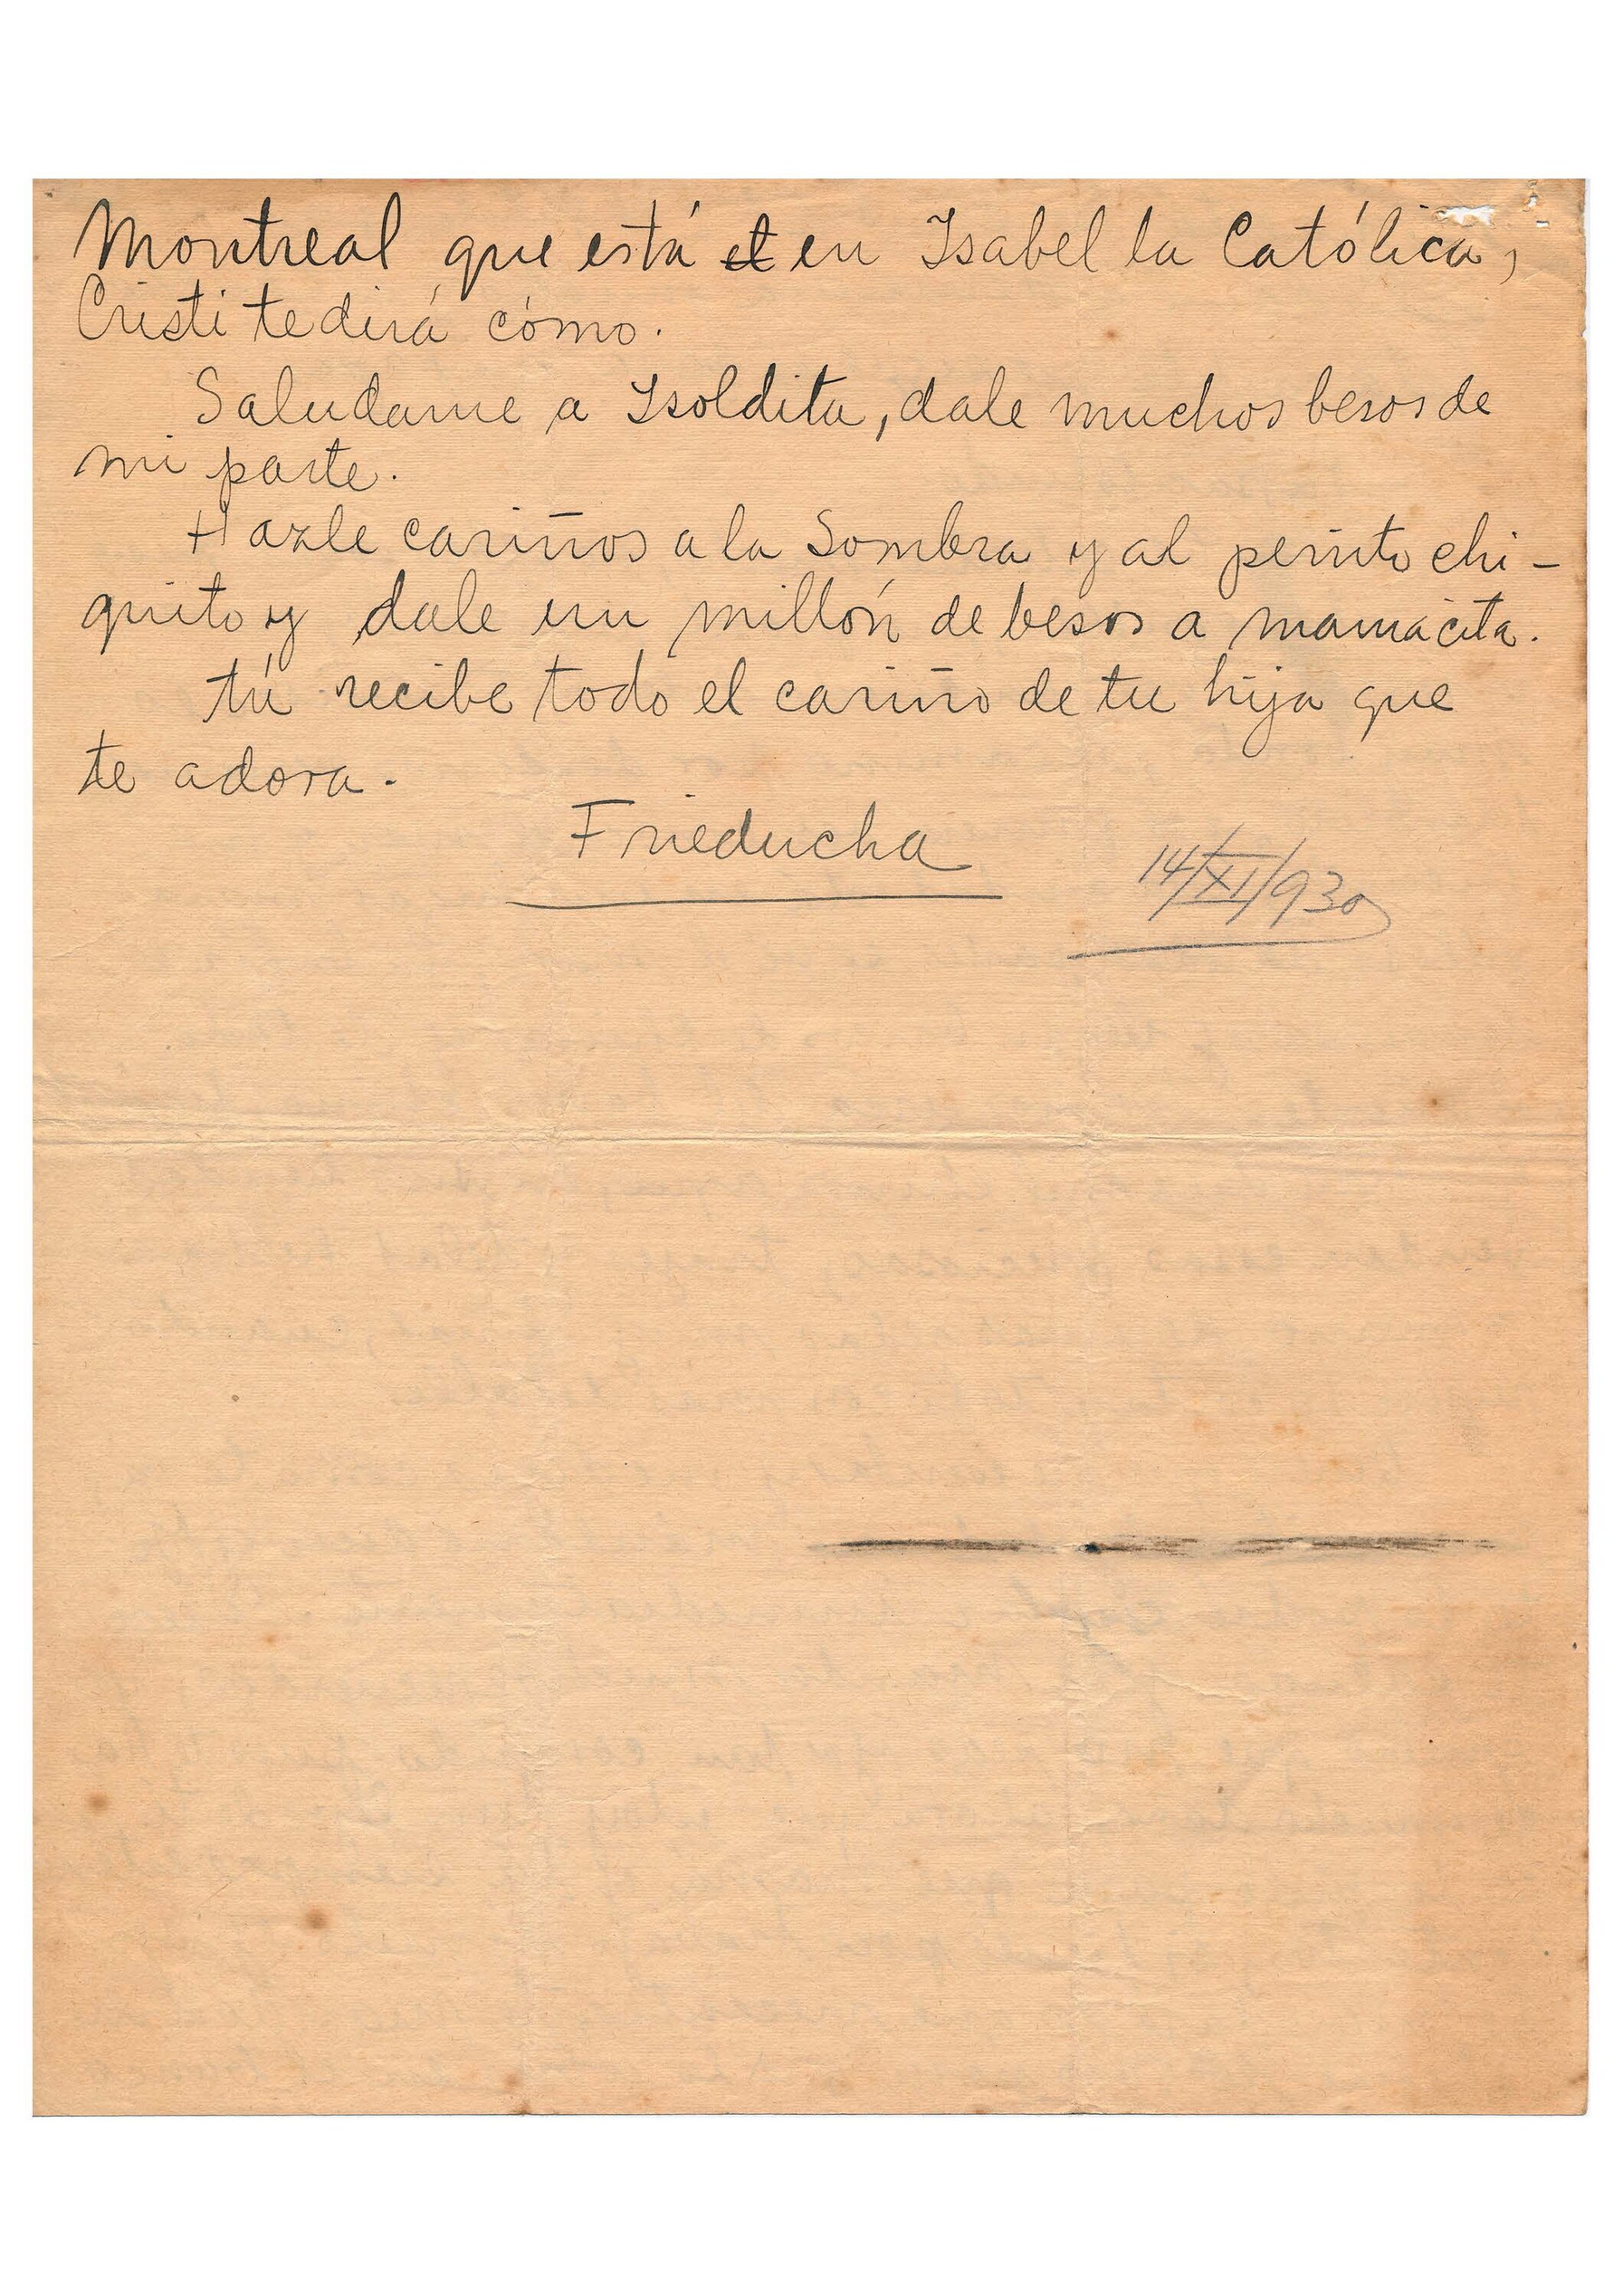 Montreal que está el en Isabel la Católica,
Cristi te dirá cómo.
Saludame a Isoldita, dale muchos besos de
mi parte.
Hazle cariños a la Sombra y al perrito chi-
quito y dale un millón de besos a mamacita.
tú recibe todo el cariño de tu hija que
te adora.
Frieducha
14/XI/930